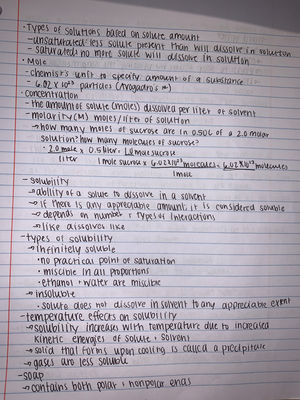 • Types of solutions based on solute amount
- unsaturated: less solute present than will dissolve in solution
- saturated: no more solute will dissolve in solution
• Mole
- chemist's unit to specify amount of a substance
- 6.02 x 10²³ particles (Avogadro's #)
• Concentration
- the amount of solute (moles) dissolved per liter of solvent
- molarity (M) moles/liter of solution
→ how many moles of sucrose are in 0.50L of a 2.0 molar
solution? how many molecules of sucrose?
• 2.0 mole x 0.5 liter = 1.0 mole sucrose
liter 1 mole sucrose x 6.02x10²³ molecules = 6.02x10²³ molecules
1 mole
- solubility
→ ability of a solute to dissolve in a solvent
→ if there is any appreciable amount, it is considered soluble
→ depends on number + types of interactions
→ like dissolves like
- types of solubility
→ infinitely soluble
• no practical point of saturation
• miscible in all proportions
• ethanol + water are miscible
→ insoluble
• solute does not dissolve in solvent to any appreciable extent
- temperature effects on solubility
→ solubility increases with temperature due to increased
kinetic energies of solute + solvent
→ solid that forms upon cooling is called a precipitate
→ gases are less soluble
- soap
→ contains both polar + nonpolar ends